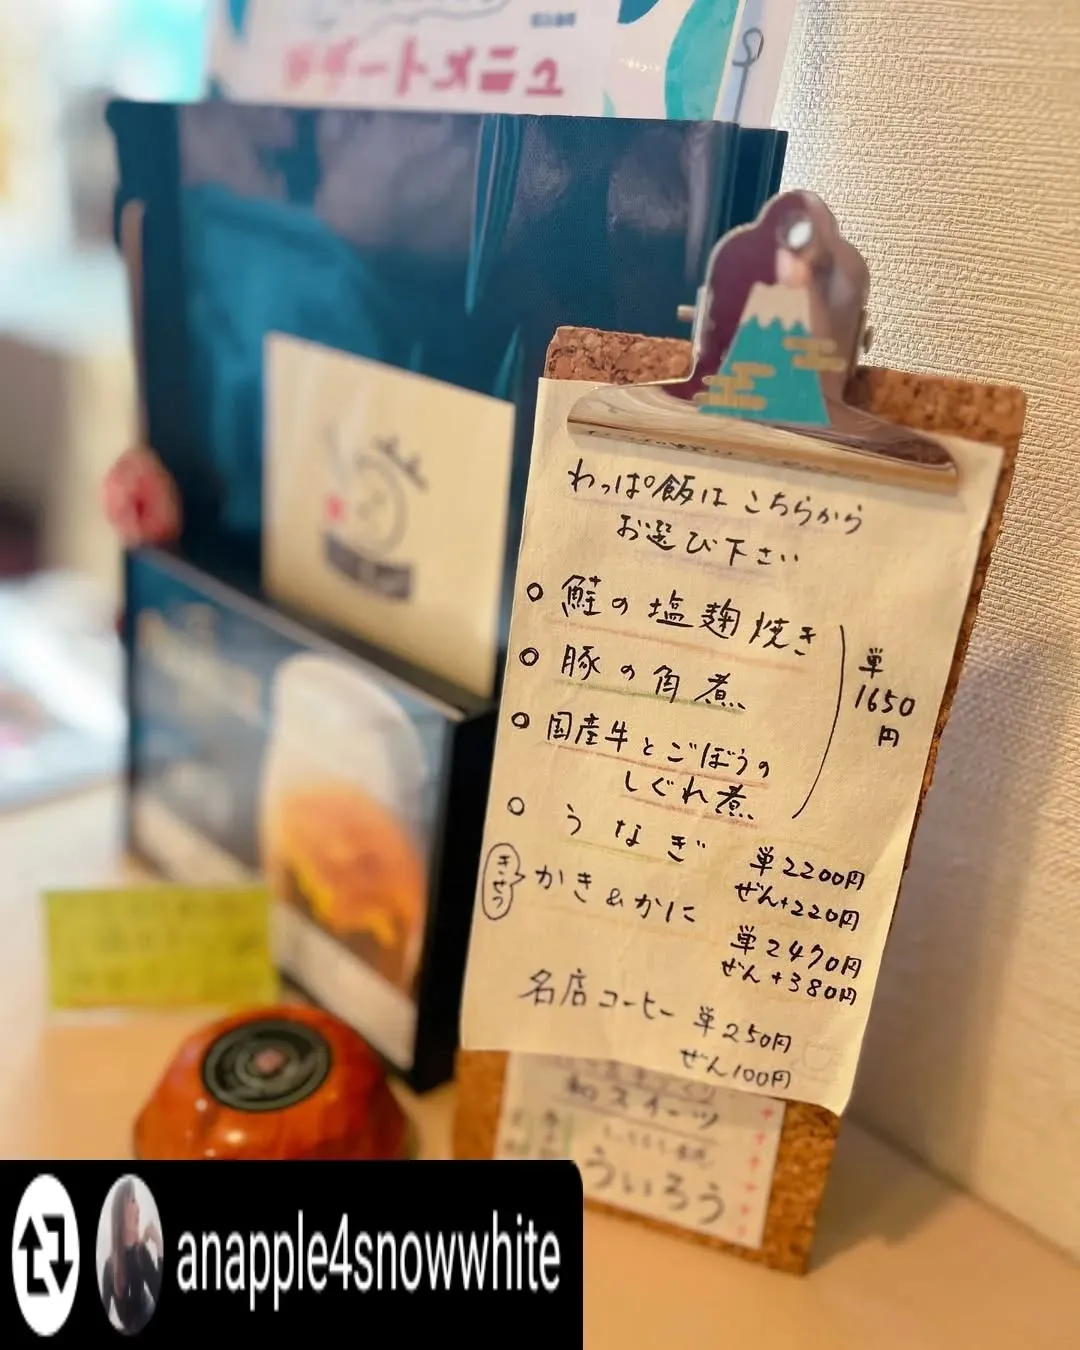 デザートメニュー
わっぱ飯は こちらから
お選び下さい
○ 鮭の塩麹焼き
○ 豚の角煮
○ 国産牛とごぼうの
しぐれ煮
単
1650
円
○ うなぎ 単2200円
ぜん+220円
きせつ かき&かに 単2470円
ぜん+380円
名店コーヒー 単250円
ぜん100円
和スイーツ
ういろう
anapple4snowwhite